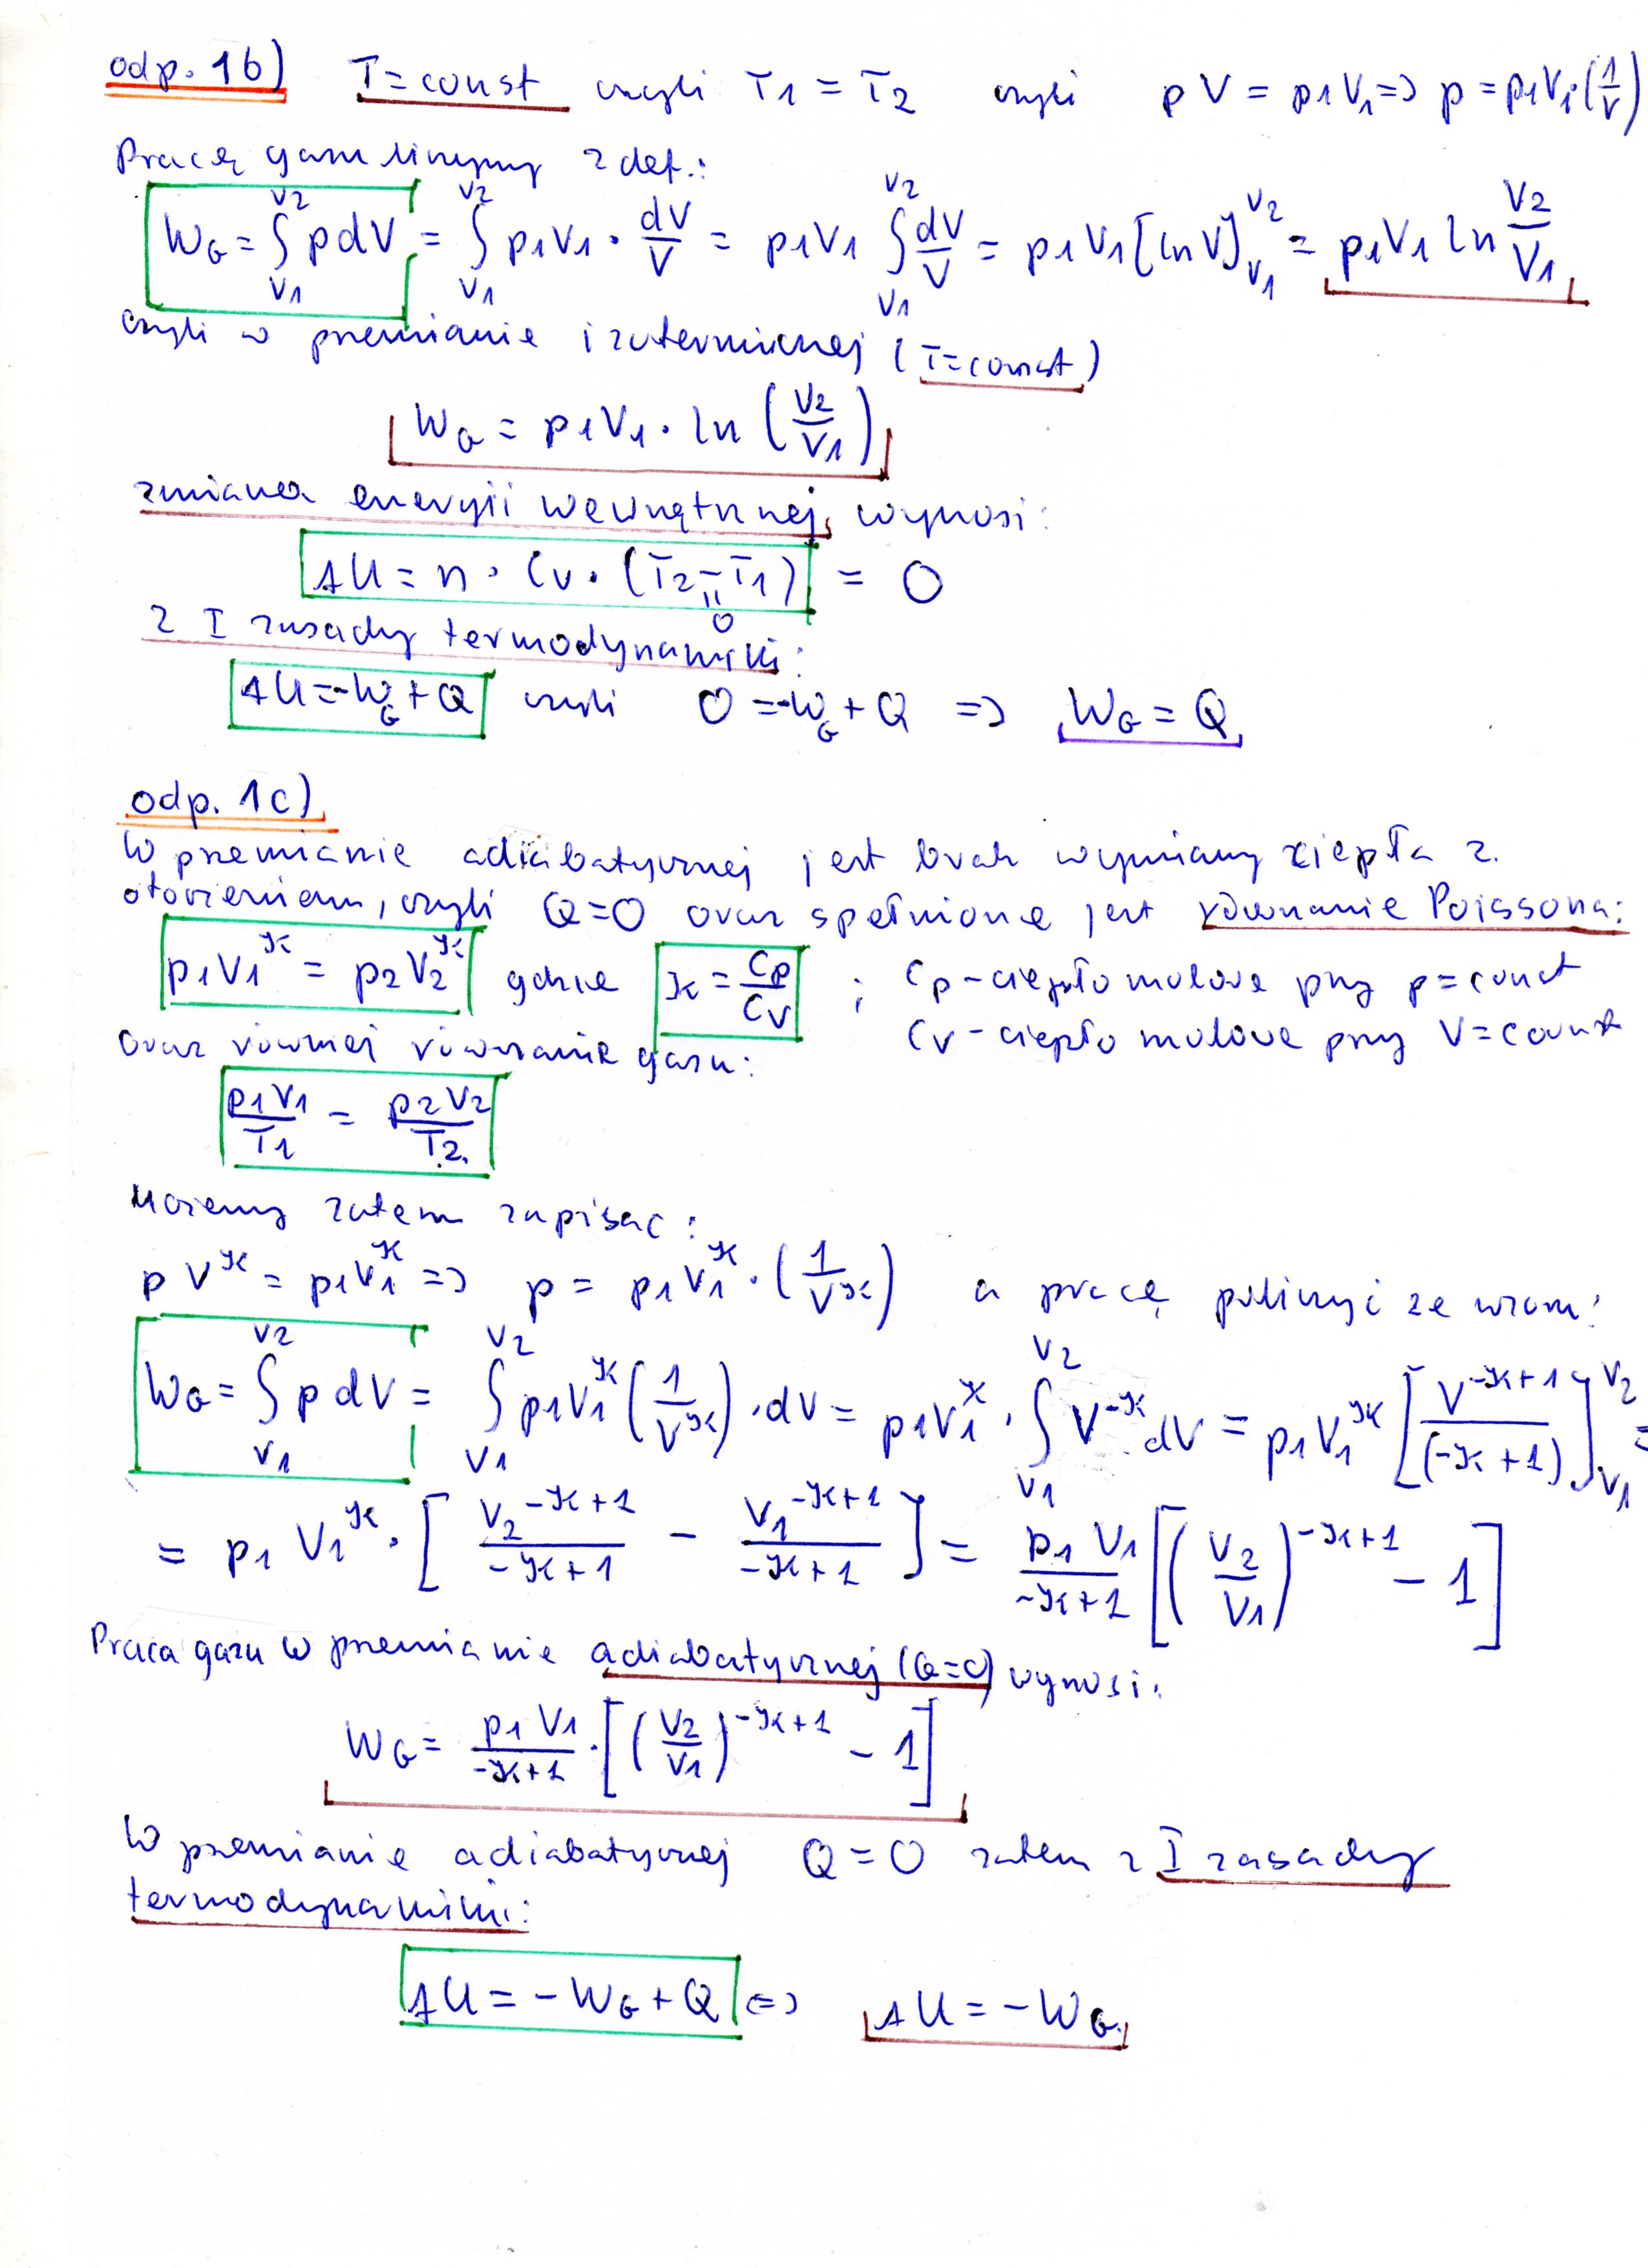 odp. 1b) T=const czyli T1 = T2 czyli pV = p1V1 => p = p1V1·(1/V)
Pracę gazu liczymy z def.:
WG = ∫_{V1}^{V2} p dV = ∫_{V1}^{V2} p1V1 · dV/V = p1V1 ∫_{V1}^{V2} dV/V = p1V1 [ln V]_{V1}^{V2} = p1V1 ln V2/V1
czyli w przemianie izotermicznej (T=const)
WG = p1V1 · ln (V2/V1)
zmiana energii wewnętrznej wynosi:
ΔU = n · Cv · (T2 - T1) = 0
"
0
z I zasady termodynamiki:
ΔU = -WG + Q czyli 0 = -WG + Q => WG = Q
odp. 1c)
W przemianie adiabatycznej jest brak wymiany ciepła z
otoczeniem, czyli Q=0 oraz spełnione jest równanie Poissona:
p1V1^ϰ = p2V2^ϰ gdzie ϰ = Cp/Cv ; Cp - ciepło molowe przy p=const
Cv - ciepło molowe przy V=const
oraz również równanie gazu:
p1V1/T1 = p2V2/T2
Możemy zatem zapisać:
pV^ϰ = p1V1^ϰ => p = p1V1^ϰ · (1/V^ϰ) a pracę policzyć ze wzoru:
WG = ∫_{V1}^{V2} p dV = ∫_{V1}^{V2} p1V1^ϰ (1/V^ϰ) · dV = p1V1^ϰ · ∫_{V1}^{V2} V^{-ϰ} dV = p1V1^ϰ [V^{-ϰ+1}/(-ϰ+1)]_{V1}^{V2} =
= p1V1^ϰ · [V2^{-ϰ+1}/-ϰ+1 - V1^{-ϰ+1}/-ϰ+1] = p1V1/-ϰ+1 [(V2/V1)^{-ϰ+1} - 1]
Praca gazu w przemianie adiabatycznej (Q=0) wynosi:
WG = p1V1/-ϰ+1 · [(V2/V1)^{-ϰ+1} - 1]
W przemianie adiabatycznej Q = 0 zatem z I zasady
termodynamiki:
ΔU = -WG + Q <=> ΔU = -WG